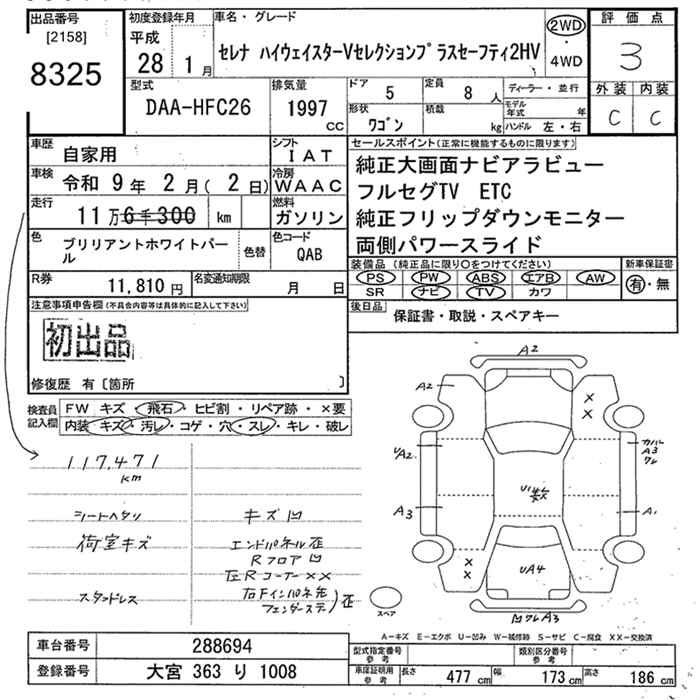 出品番号
[2158]
8325
初度登録年月
平成
28 1月
車名・グレード
セレナ ハイウェイスターVセレクションプラスセーフティ2HV
2WD
・
4WD
評価点
3
外装 内装
C C
型式
DAA-HFC26
排気量
1997
CC
ドア
5
定員
8 人
形状
ワゴン
積載
kg
ディーラー・並行
モデル年式 年
ハンドル 左・右
車歴
自家用
シフト
IAT
車検
令和 9年 2月( 2日)
冷房
WAAC
走行
11万6千300 km
燃料
ガソリン
色
ブリリアントホワイトパール
色替
色コード
QAB
R券
11,810 円
名変通知期限
月 日
セールスポイント(正常に機能するものに限ります)
純正大画面ナビアラビュー
フルセグTV ETC
純正フリップダウンモニター
両側パワースライド
装備品(純正品に限り○をつけてください)
PS PW ABS エアB AW
SR ナビ TV カワ
新車保証書
有・無
後日品
保証書・取説・スペアキー
注意事項申告欄(不具合内容等は具体的に記入して下さい)
初出品
修復歴 有〔箇所 〕
検査員記入欄
FW キズ・飛石・ヒビ割・リペア跡・×要
内装 キズ・汚レ・コゲ・穴・スレ・キレ・破レ
117,471
km
シートヘタリ
荷室キズ
スタッドレス
キズ凹
エンドパネル歪
Rフロア凹
左Rコーナー××
右Fインパネ先
フェンダーステ)歪
A2
A2
×
×
U/A2
カバー
A3
ワレ
U1数
A3
A1
×
×
UA4
凹ワレA3
スペア
A−キズ E−エクボ U−凹み W−補修跡 S−サビ C−腐食 XX−交換済
車台番号
288694
登録番号
大宮 363 り 1008
型式指定番号
参考
類別区分番号
参考
車庫証明用
参考
長さ 477 cm 幅 173 cm 高さ 186 cm